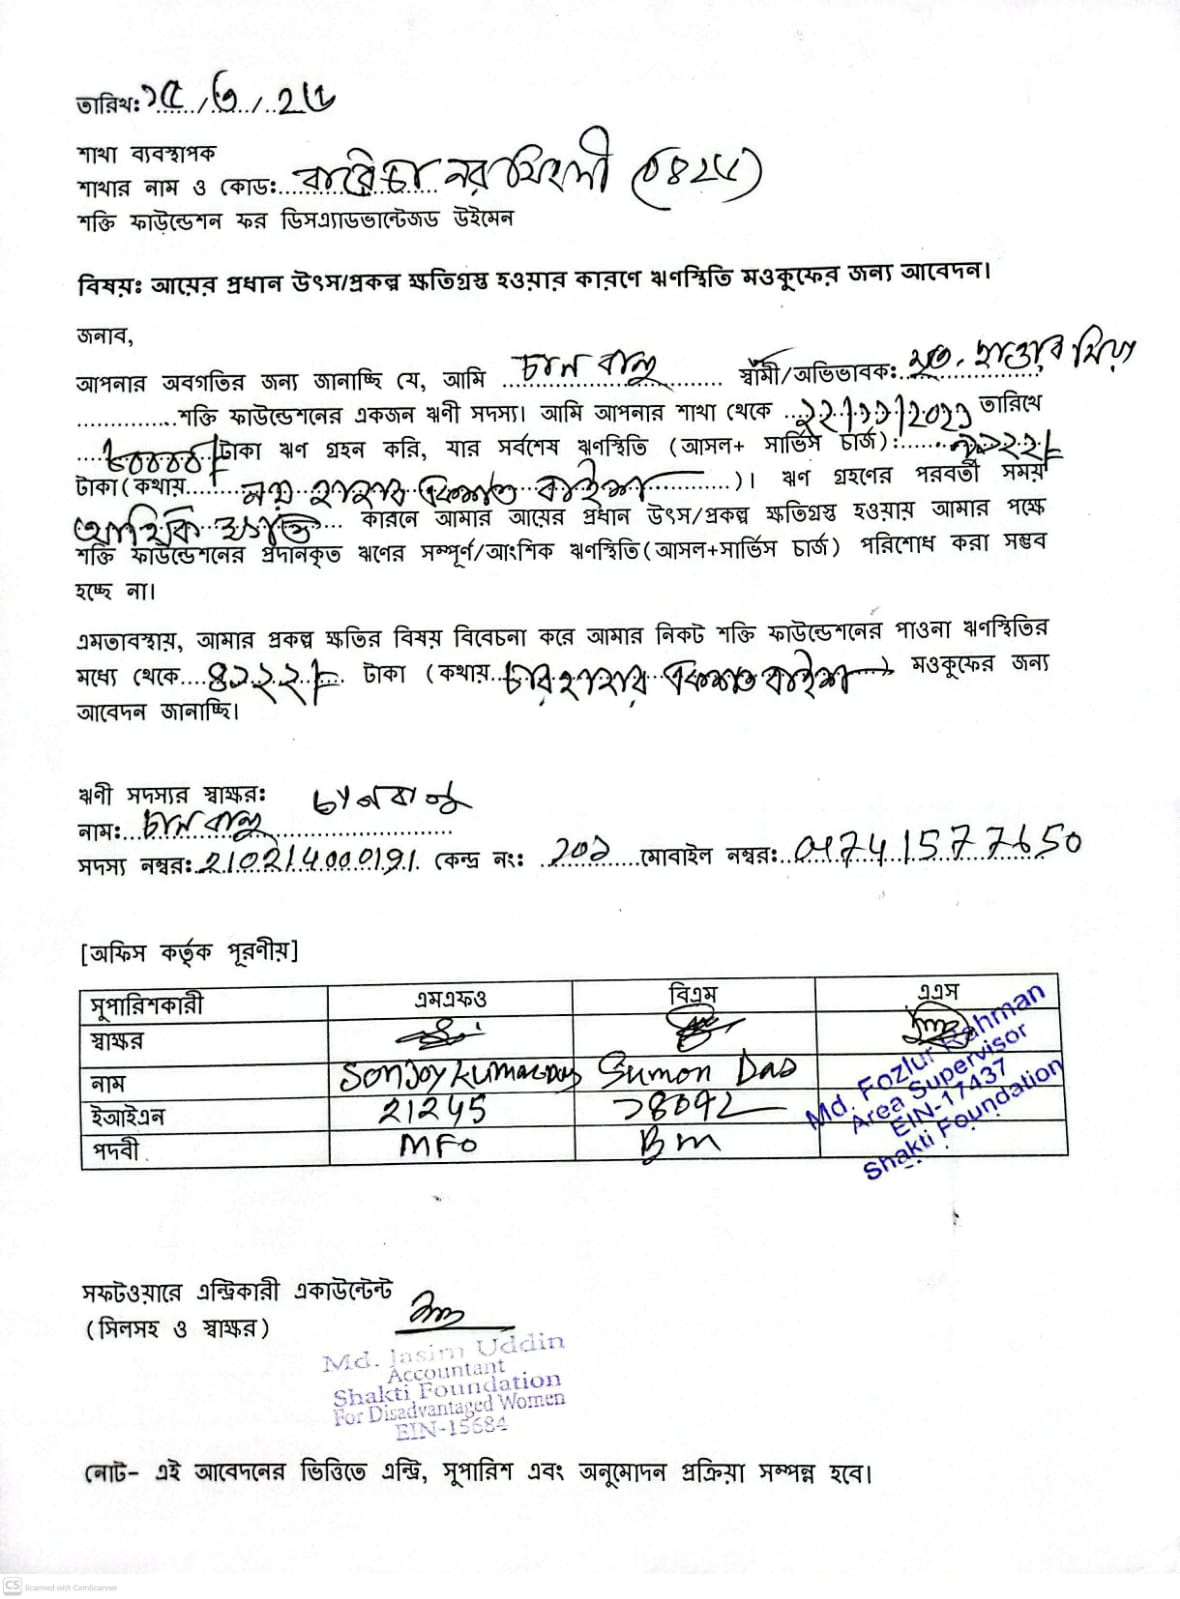 তারিখঃ ১৫/৩/২৫
শাখা ব্যবস্থাপক
শাখার নাম ও কোডঃ বারৈচা নরসিংদী (0৪২৫)
শক্তি ফাউন্ডেশন ফর ডিসএ্যাডভান্টেজড উইমেন
বিষয়ঃ আয়ের প্রধান উৎস/প্রকল্প ক্ষতিগ্রস্ত হওয়ার কারণে ঋণস্থিতি মওকুফের জন্য আবেদন।
জনাব,
আপনার অবগতির জন্য জানাচ্ছি যে, আমি চান বানু স্বামী/অভিভাবকঃ মৃত. মিয়া
শক্তি ফাউন্ডেশনের একজন ঋনী সদস্য। আমি আপনার শাখা থেকে ২২/১১/২০২১ তারিখে
৮০০০০/- টাকা ঋণ গ্রহন করি, যার সর্বশেষ ঋণস্থিতি (আসল+ সার্ভিস চার্জ): ৯১২২/-
টাকা(কথায় নয় হাজার একশত বাইশ)। ঋণ গ্রহণের পরবর্তী সময়
আর্থিক ক্ষতি কারনে আমার আয়ের প্রধান উৎস/প্রকল্প ক্ষতিগ্রস্থ হওয়ায় আমার পক্ষে
শক্তি ফাউন্ডেশনের প্রদানকৃত ঋণের সম্পূর্ণ/আংশিক ঋণস্থিতি(আসল+সার্ভিস চার্জ) পরিশোধ করা সম্ভব
হচ্ছে না।
এমতাবস্থায়, আমার প্রকল্প ক্ষতির বিষয় বিবেচনা করে আমার নিকট শক্তি ফাউন্ডেশনের পাওনা ঋণস্থিতির
মধ্যে থেকে ৪১২২/- টাকা (কথায় চার হাজার একশত বাইশ) মওকুফের জন্য
আবেদন জানাচ্ছি।
ঋনী সদস্যর স্বাক্ষরঃ চানবানু
নামঃ চান বানু
সদস্য নম্বরঃ 210214000191 কেন্দ্র নংঃ ২০১ মোবাইল নম্বরঃ 01741577650
[অফিস কর্তৃক পূরণীয়]
সুপারিশকারী এমএফও বিএম এএস
স্বাক্ষর
নাম Sonjoy Kumar Das Sumon Das
ইআইএন 21245 18092
পদবী MFO BM
Md. Fozlur Rahman
Area Supervisor
EIN-17437
Shakti Foundation
সফটওয়ারে এন্ট্রিকারী একাউন্টেন্ট
(সিলসহ ও স্বাক্ষর)
Md. Jasim Uddin
Accountant
Shakti Foundation
For Disadvantaged Women
EIN-15684
নোট- এই আবেদনের ভিত্তিতে এন্ট্রি, সুপারিশ এবং অনুমোদন প্রক্রিয়া সম্পন্ন হবে।
CS Scanned with CamScanner